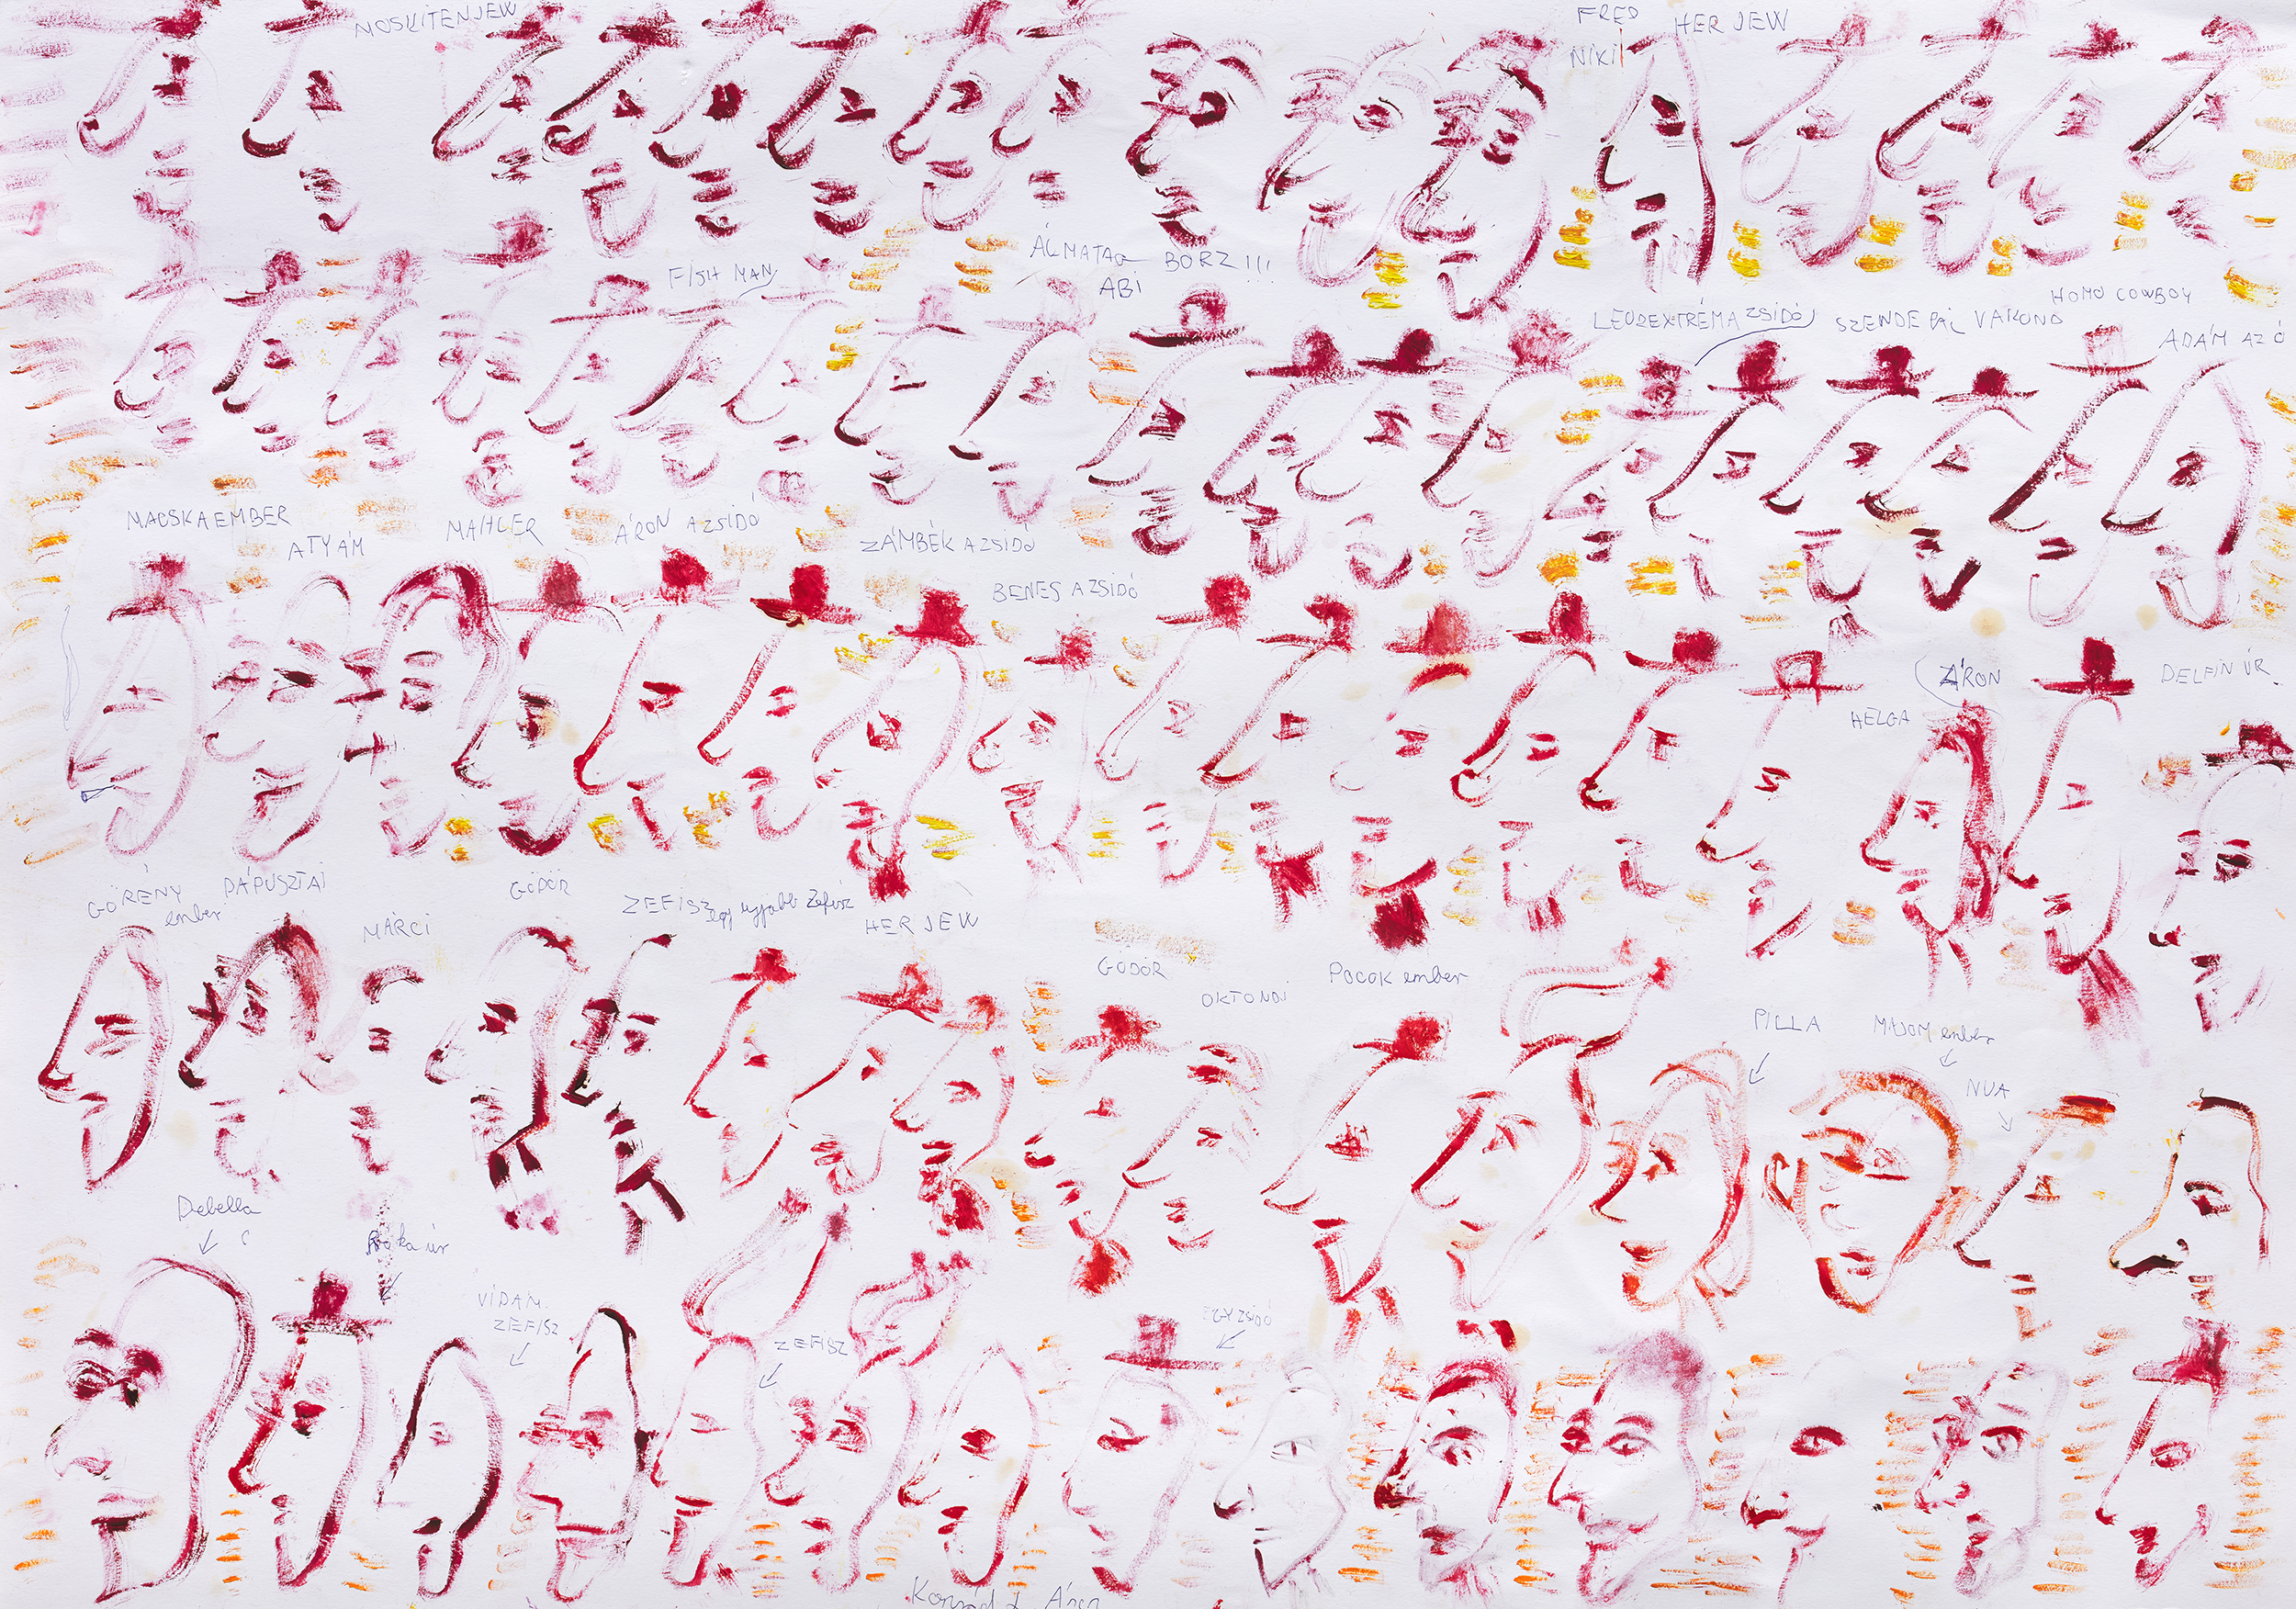 MOSKITENJEW
FRED
NIKI
HER JEW
FISH MAN
ÁLMATAG BORZ!!!
ABI
LEUDEXTRÉMA ZSIDÓ
SZENDE PÁL VAKOND
HOMO COWBOY
ÁDÁM AZ Ó
MACSKAEMBER
ATYÁM
MAHLER
ÁRON A ZSIDÓ
ZÁMBÉK A ZSIDÓ
BENES A ZSIDÓ
ÁRON
HELGA
DELFIN ÚR
GÖRÉNY
ember
PÁPUSZTAI
MARCI
GÖDÖR
ZEFISZ
egy ujjabb Zefisz
HER JEW
GÖDÖR
OKTONDI
POCOK ember
PILLA
MAJOM ember
NUA
Debella
Róka úr
VIDÁM
ZEFISZ
ZEFISZ
EGY ZSIDÓ
Konrád I. Áron